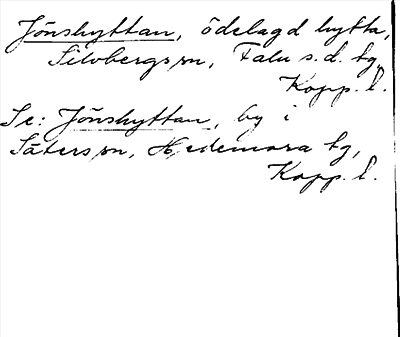 Jönshyttan, ödelagd hytta,
Silvbergs sn, Falu s.d. tg,
Kopp. l.
Se: Jönshyttan, by i
Säters sn, Hedemora tg,
Kopp. l.